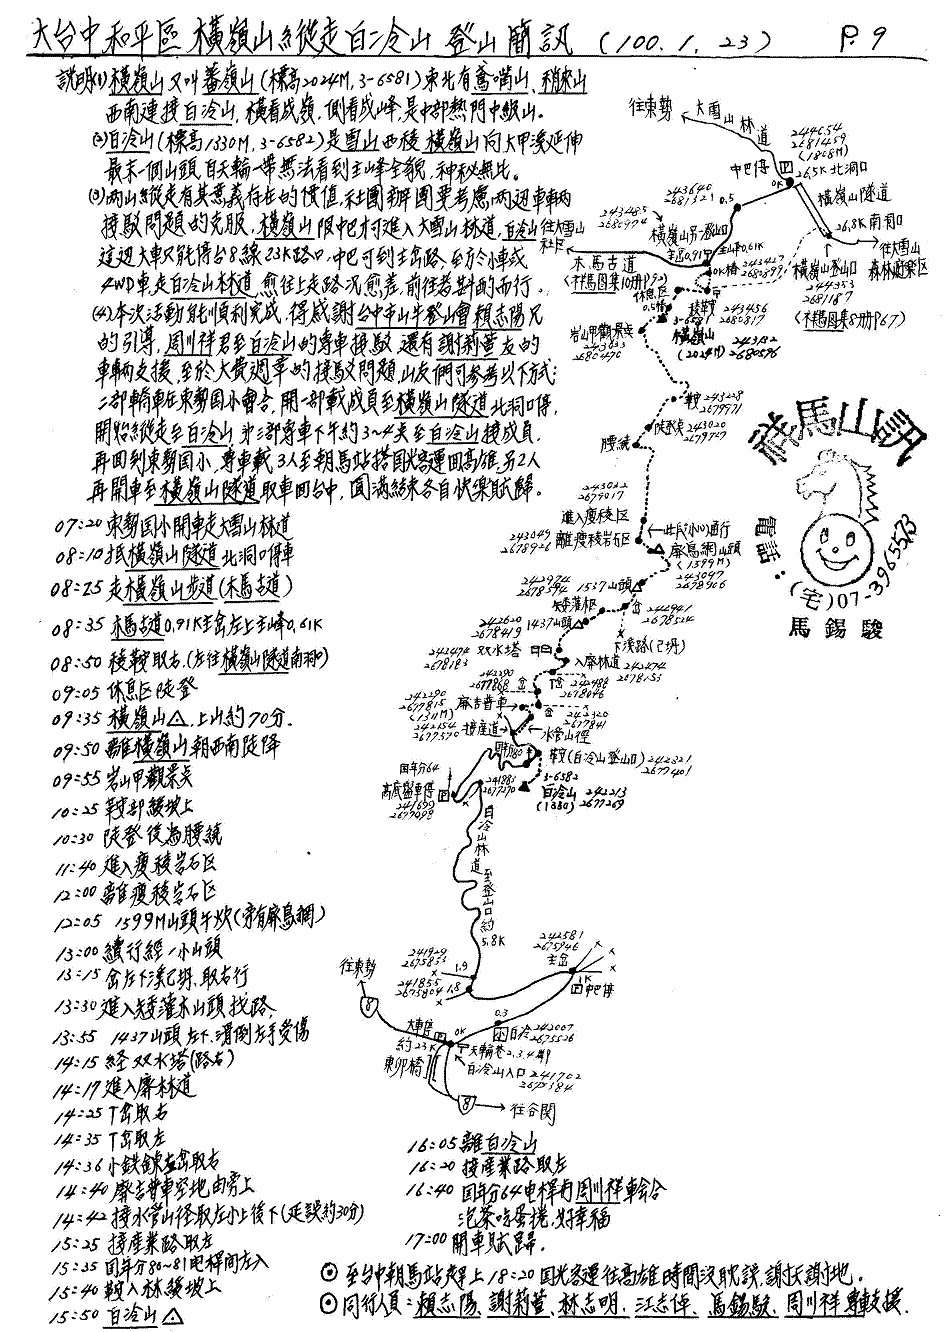 大台中和平區 橫嶺山縱走白冷山 登山簡訊 (100.1.23) P.9
說明(1)橫嶺山又叫蕃嶺山(標高2024M,3-6581)東北有鳶嘴山、稍來山
西南連接白冷山,橫看成嶺,側看成峰,是中部熱門中級山。
(2)白冷山(標高1330M,3-6582)是雪山西稜橫嶺山向大甲溪延伸
最末一個山頭,自天輪一帶無法看到主峰全貌,神秘無比。
(3)兩山縱走有其意義存在的價值,社團辦團要考慮兩邊車輛
接駁問題的克服,橫嶺山限中巴可進入大雪山林道,白冷山
這邊大車只能停台8線23K路口,中巴可到主岔路,至於小車或
4WD車,走白冷山林道,愈往上走路況愈差,前往者斟酌而行。
(4)本次活動能順利完成,得感謝台中半山半登山會賴志陽兄
的引導,周川祥君至白冷山的專車接駁,還有謝莉萱友的
車輛支援,至於大費週章的接駁問題,山友們可參考以下方式:
二部轎車在東勢国小會合,開一部載成員至橫嶺山隧道北洞口停,
開始縱走至白冷山,第三部專車下午約3~4点至白冷山接成員,
再回到東勢国小,專車載3人至朝馬站搭国光客運回高雄,另2人
再開車至橫嶺山隧道取車回台中,圓滿結束各自快樂賦歸。
07:20 東勢国小開車走大雪山林道
08:10 抵橫嶺山隧道北洞口停車
08:25 走橫嶺山步道(木馬古道)
08:35 木馬古道0.91K主岔左上主峰0.61K
08:50 稜鞍取右,(左往橫嶺山隧道南洞口)
09:05 休息区陡登
09:35 橫嶺山△,上山約70分.
09:50 離橫嶺山朝西南陡降
09:55 岩山甲觀景点
10:25 鞍部緩坡上
10:30 陡登後為腰繞
11:40 進入瘦稜岩石区
12:00 離瘦稜岩石区
12:05 1599M山頭午炊(旁有廢鳥網)
13:00 續行經一小山頭
13:15 岔左下溪已坍,取右行
13:30 進入矮灌木山頭找路,
13:55 1437山頭左下,滑倒左手受傷
14:15 経双水塔(路右)
14:17 進入廢林道
14:25 T岔取右
14:35 T岔取左
14:40 廢吉普車空地由旁上
14:42 接水管山徑取左小上後下(延誤約30分)
15:25 接産業路取左
15:35 国年分80~81电桿間左入
15:40 鞍入林緩坡上
15:50 白冷山△
16:05 離白冷山
16:20 接産業路取左
16:40 国年分64电桿有周川祥車會合
泡茶吃蛋捲,好幸福
17:00 開車賦歸.
⊙ 至台中朝馬站乘上18:20国光客運往高雄時間沒耽誤,謝天謝地.
⊙ 同行人員:賴志陽、謝莉萱、林志明、江志偉、馬錫駿、周川祥專車支援.
往東勢
大雪山林道
244654
2681459
(1808M)
中巴停
26.5K北洞口
0K
橫嶺山隧道
26.8K南洞口
往大雪山
森林遊樂区
橫嶺山登山口
244353
2681187
0.5
243640
2681321
243485
2680974
橫嶺山另一登山口
木馬古道
主峰0.61K
243427
2680899
休息区
0.5K
稜鞍
243456
2680817
3-6581
橫嶺山
(2024M)
243132
2680576
岩山甲觀景点
243033
2680470
鞍
243228
2679971
陡登点
243020
2679727
腰繞
243022
2679017
進入瘦稜区
243049
2678926
離瘦稜岩石区
廢鳥網山頭
(1599M)
243047
2678906
242974
2678594
1537山頭
矮灌木区
岔
242941
2678524
下溪路(已坍)
242620
2678419
1437山頭
242474
2678183
双水塔
入廢林道
242474
2678153
242290
2677868
T岔
242486
2678046
廢吉普車
242290
2677815
(1311M)
岔
242320
2677841
242154
2677570
接産道
水管山徑
鞍(白冷山登山口)
242321
2677401
3-6582
白冷山
(1330)
242213
2677269
国年分64
高底盤車停
241699
2677098
241883
2677270
白冷山林道至登山口約5.8K
241929
2675833
1.9
241855
2675804
1.8
242581
2675946
主岔
1K
中巴停
0.3
白冷
242007
2675526
往東勢
8
大車停
約23K
0K
東卯橋
天輪巷2.3.4鄰
白冷山入口
241702
2675384
8
往谷関
祥馬山訊
電話:(宅)07-3965573
馬錫駿